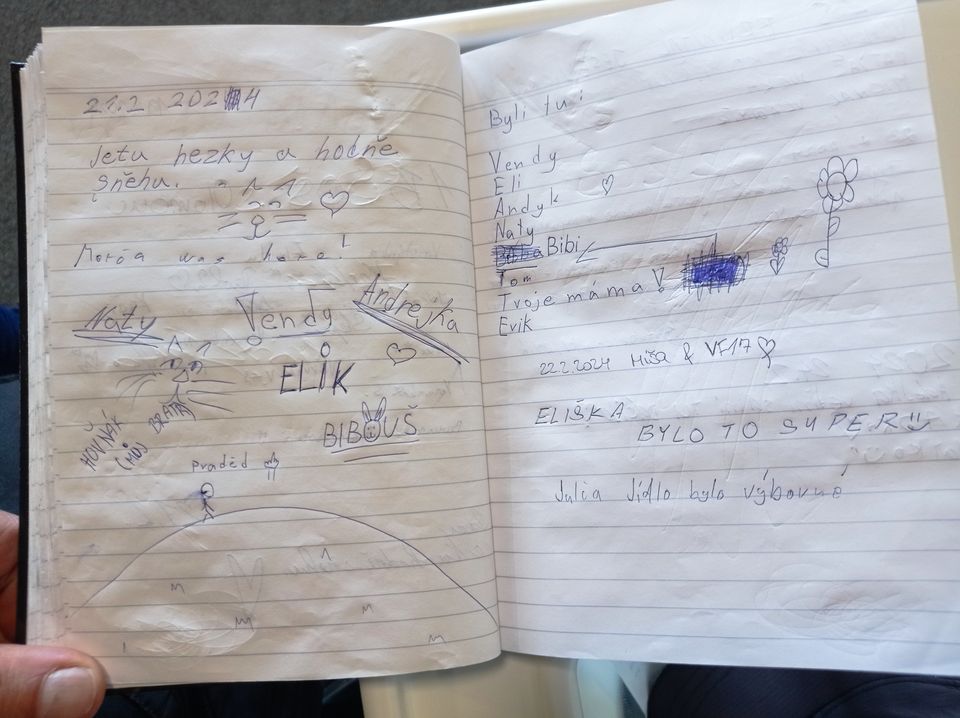 21.2 2024
Jetu hezky a hodně
sněhu.
was here!
Naty
Vendy
Andrejka
ELIK
HOVŇÁK
(MŮJ BRATR)
BIBOUŠ
praděd
Byli tu:
Vendy
Eli
Andyk
Naty
Bibi
Tom
Tvoje máma!
Evik
22.2.2024 Míša & VF17
ELIŠKA
BYLO TO SUPER
Julia Jídlo bylo výborné